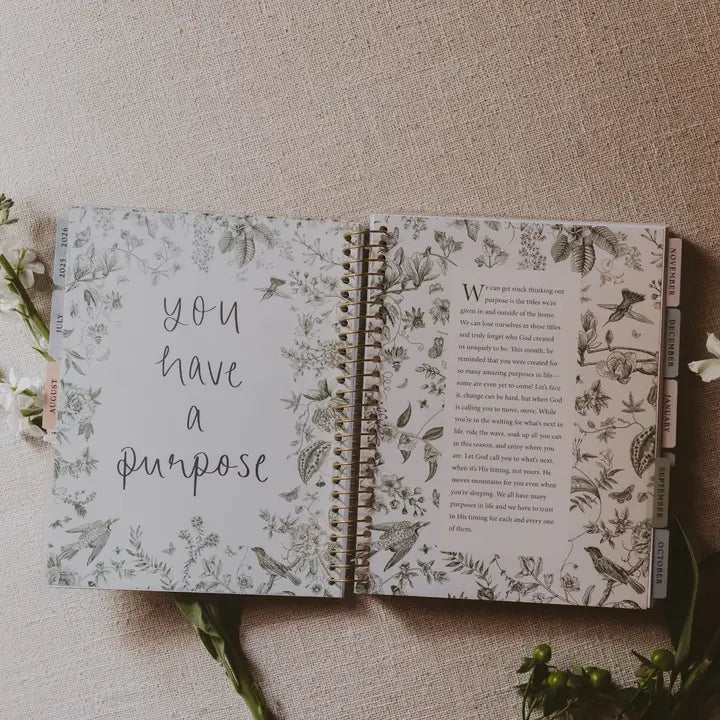 2025 2026
JULY
AUGUST
you
have
a
purpose
We can get stuck thinking our
purpose is the titles we're
given in and outside of the home.
We can lose ourselves in these titles
and truly forget who God created
us uniquely to be. This month, be
reminded that you were created for
so many amazing purposes in life—
some are yet to come! Let's face
it, change can be hard, but when God
is calling you to move, move. While
you're in the waiting for what's next in
life, ride the wave, soak up all you can
in this season, and enjoy where you
are. Let God call you to what's next,
when it's His timing, not yours. He
moves mountains for you even when
you're sleeping. We all have many
purposes in life and we have to trust
in His timing for each and every one
of them.
NOVEMBER
DECEMBER
JANUARY
SEPTEMBER
OCTOBER